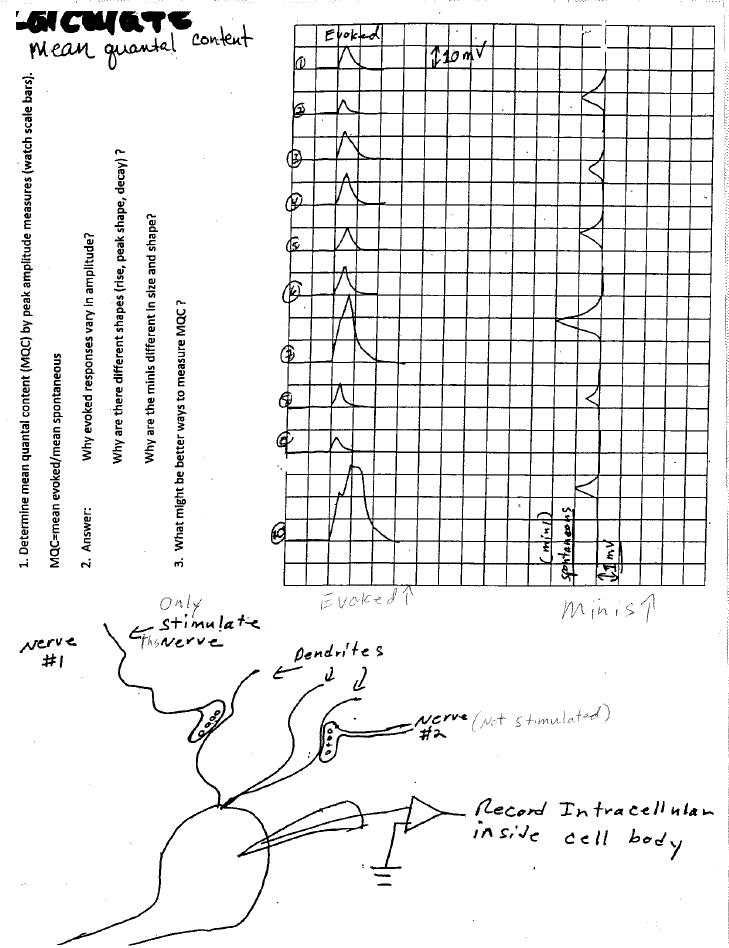 Calculate
Mean quantal content
1. Determine mean quantal content (MQC) by peak amplitude measures (watch scale bars).
MQC=mean evoked/mean spontaneous
2. Answer: Why evoked responses vary in amplitude?
Why are there different shapes (rise, peak shape, decay) ?
Why are the minis different in size and shape?
3. What might be better ways to measure MQC ?
Evoked
10 mV
1
2
3
4
5
6
7
8
9
10
(mini)
spontaneous
1 mV
Evoked ↑
Minis ↑
Only
← stimulate
this Nerve
Nerve
#1
Dendrites
Nerve (Not stimulated)
#2
Record Intracellular
inside cell body